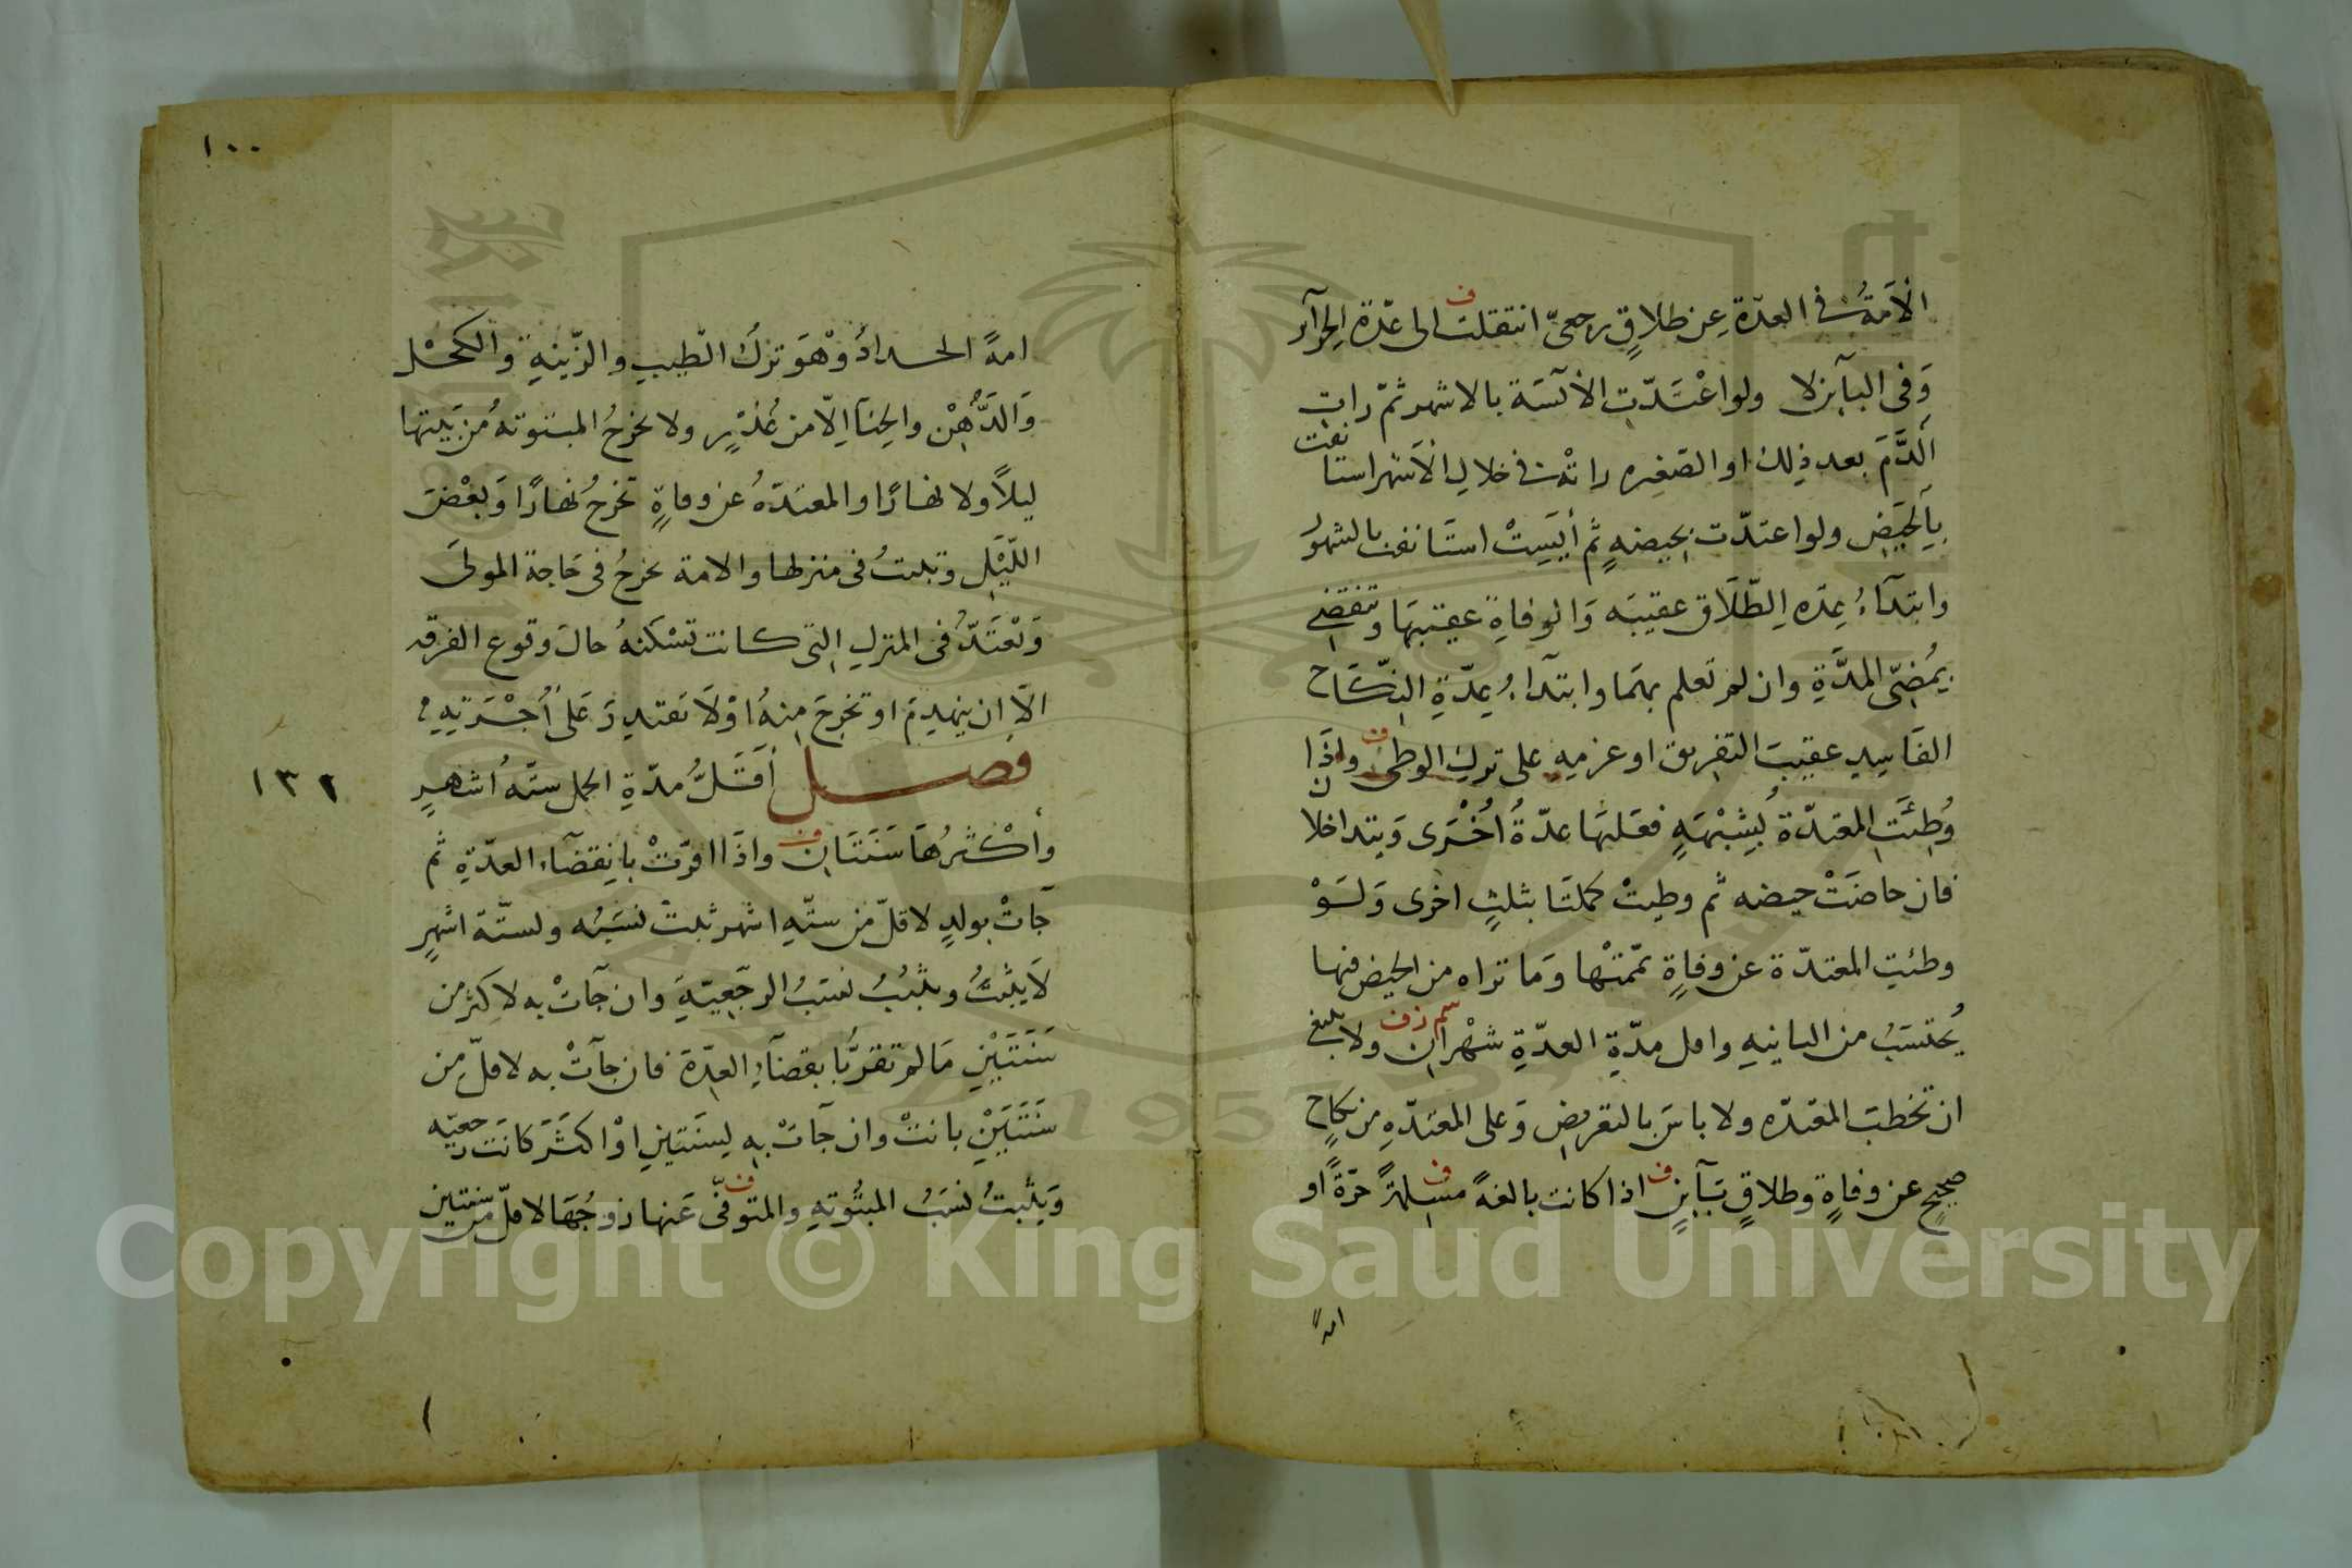 الاَمَةُ في العدّة عن طلاقٍ رجعيّ انتقلت الى عدّة الحرآئر
وَفي البآين لا ولو اعْتَدّتِ الاٰئسَة بالاشهر ثمّ رات
الدَّمَ بعد ذلك او الصّغيره راتْه في خلالِ الاَشهر استانفت
بِالحَيَضِ ولو اعتدّت بحيضةٍ ثم أيِسَتْ استَانفت بالشهوُر
وابتدَآءُ عِدّه الطّلَاق عقيبَه وَالوفاةِ عقيبَها وتنقضي
بِمُضيّ المدَّةِ وان لم تعلم بهَما وابتدآءُ عِدّةِ النّكَاح
الفَاسِدِ عقيبَ التفريق او عزمِهِ على تركِ الوطئ واِذَا
وُطِئَتِ المعتدّة بُشِبْهَةٍ فعَليْهَا عدّةُ اُخْرَى وَيتداخلان
فان حاضَتْ حيضه ثم وطيتْ كمّلتَا بثلثٍ اخرى وَلَوْ
وطئيتِ المعتدّة عن وفاةٍ تمّمتْها وَما تراه من الحيض فيها
يُحتَسَبُ من الثانيةِ واقل مدّةِ العدّةِ شهْران ولا ينبغي
ان تخطبَ المعتدّه ولا باسَ بالتعريضِ وَعلى المعتدّهِ من نكاحٍ
صحيحٍ عن وفاةٍ وطلاقٍ بَآينٍ اذا كانت بالغةً مسلمةً حرّةً او
امةً
١٠٠
امةً الحدادُ وْهوَ تركُ الطّيبِ والزّينةِ والكحْل
وَالدُّهْنِ والحِنّآ اِلاّ من عُذْرٍ ولا تخرجُ المبتوتةُ من بَيتها
ليلاً ولا نهارًا والمعتدّهُ عن وفاةٍ تخرجُ نهارًا وَبعْضَ
اللّيْلِ وتبيتُ في منزلها والامة تخرجُ في حَاجة المولىَ
وَتعْتَدُّ في المنزلِ التى كانت تسْكنهُ حالَ وقوع الفرقه
الاّ ان ينهدِمَ او تخرجَ مِنهُ اوْلاَ تقدِرَ عَلى أُجْرَتِهِ
فصل أقَلُّ مدّةِ الحمل ستّةُ أشهرٍ
١٣٢
وأكْثرُهَا سَنَتَانِ واذَا اقرّتْ بانقضَآء العدّةِ ثم
جَآتْ بولدٍ لاقلّ من ستّهِ اشهر ثبت نسَبُه ولستّة اشهرٍ
لَا يثبتُ ويثبتُ نسَبُ الرجَعِيّةِ وان جَآتْ به لاكثر من
سَنَتَيْنِ مَا لم تقرّ بانقضآءِ العِدّة فان جآتْ به لاقلّ مِن
سَنَتَيْنِ بانتْ وان جآتْ به لِسَنَتينِ اوْ اكثرَ كانَتْ رجعيّه
وَيَثْبتُ نسَبُ المبتُوتهِ والمتوَفّى عَنها زوجُهَا لاقلّ من سنتين